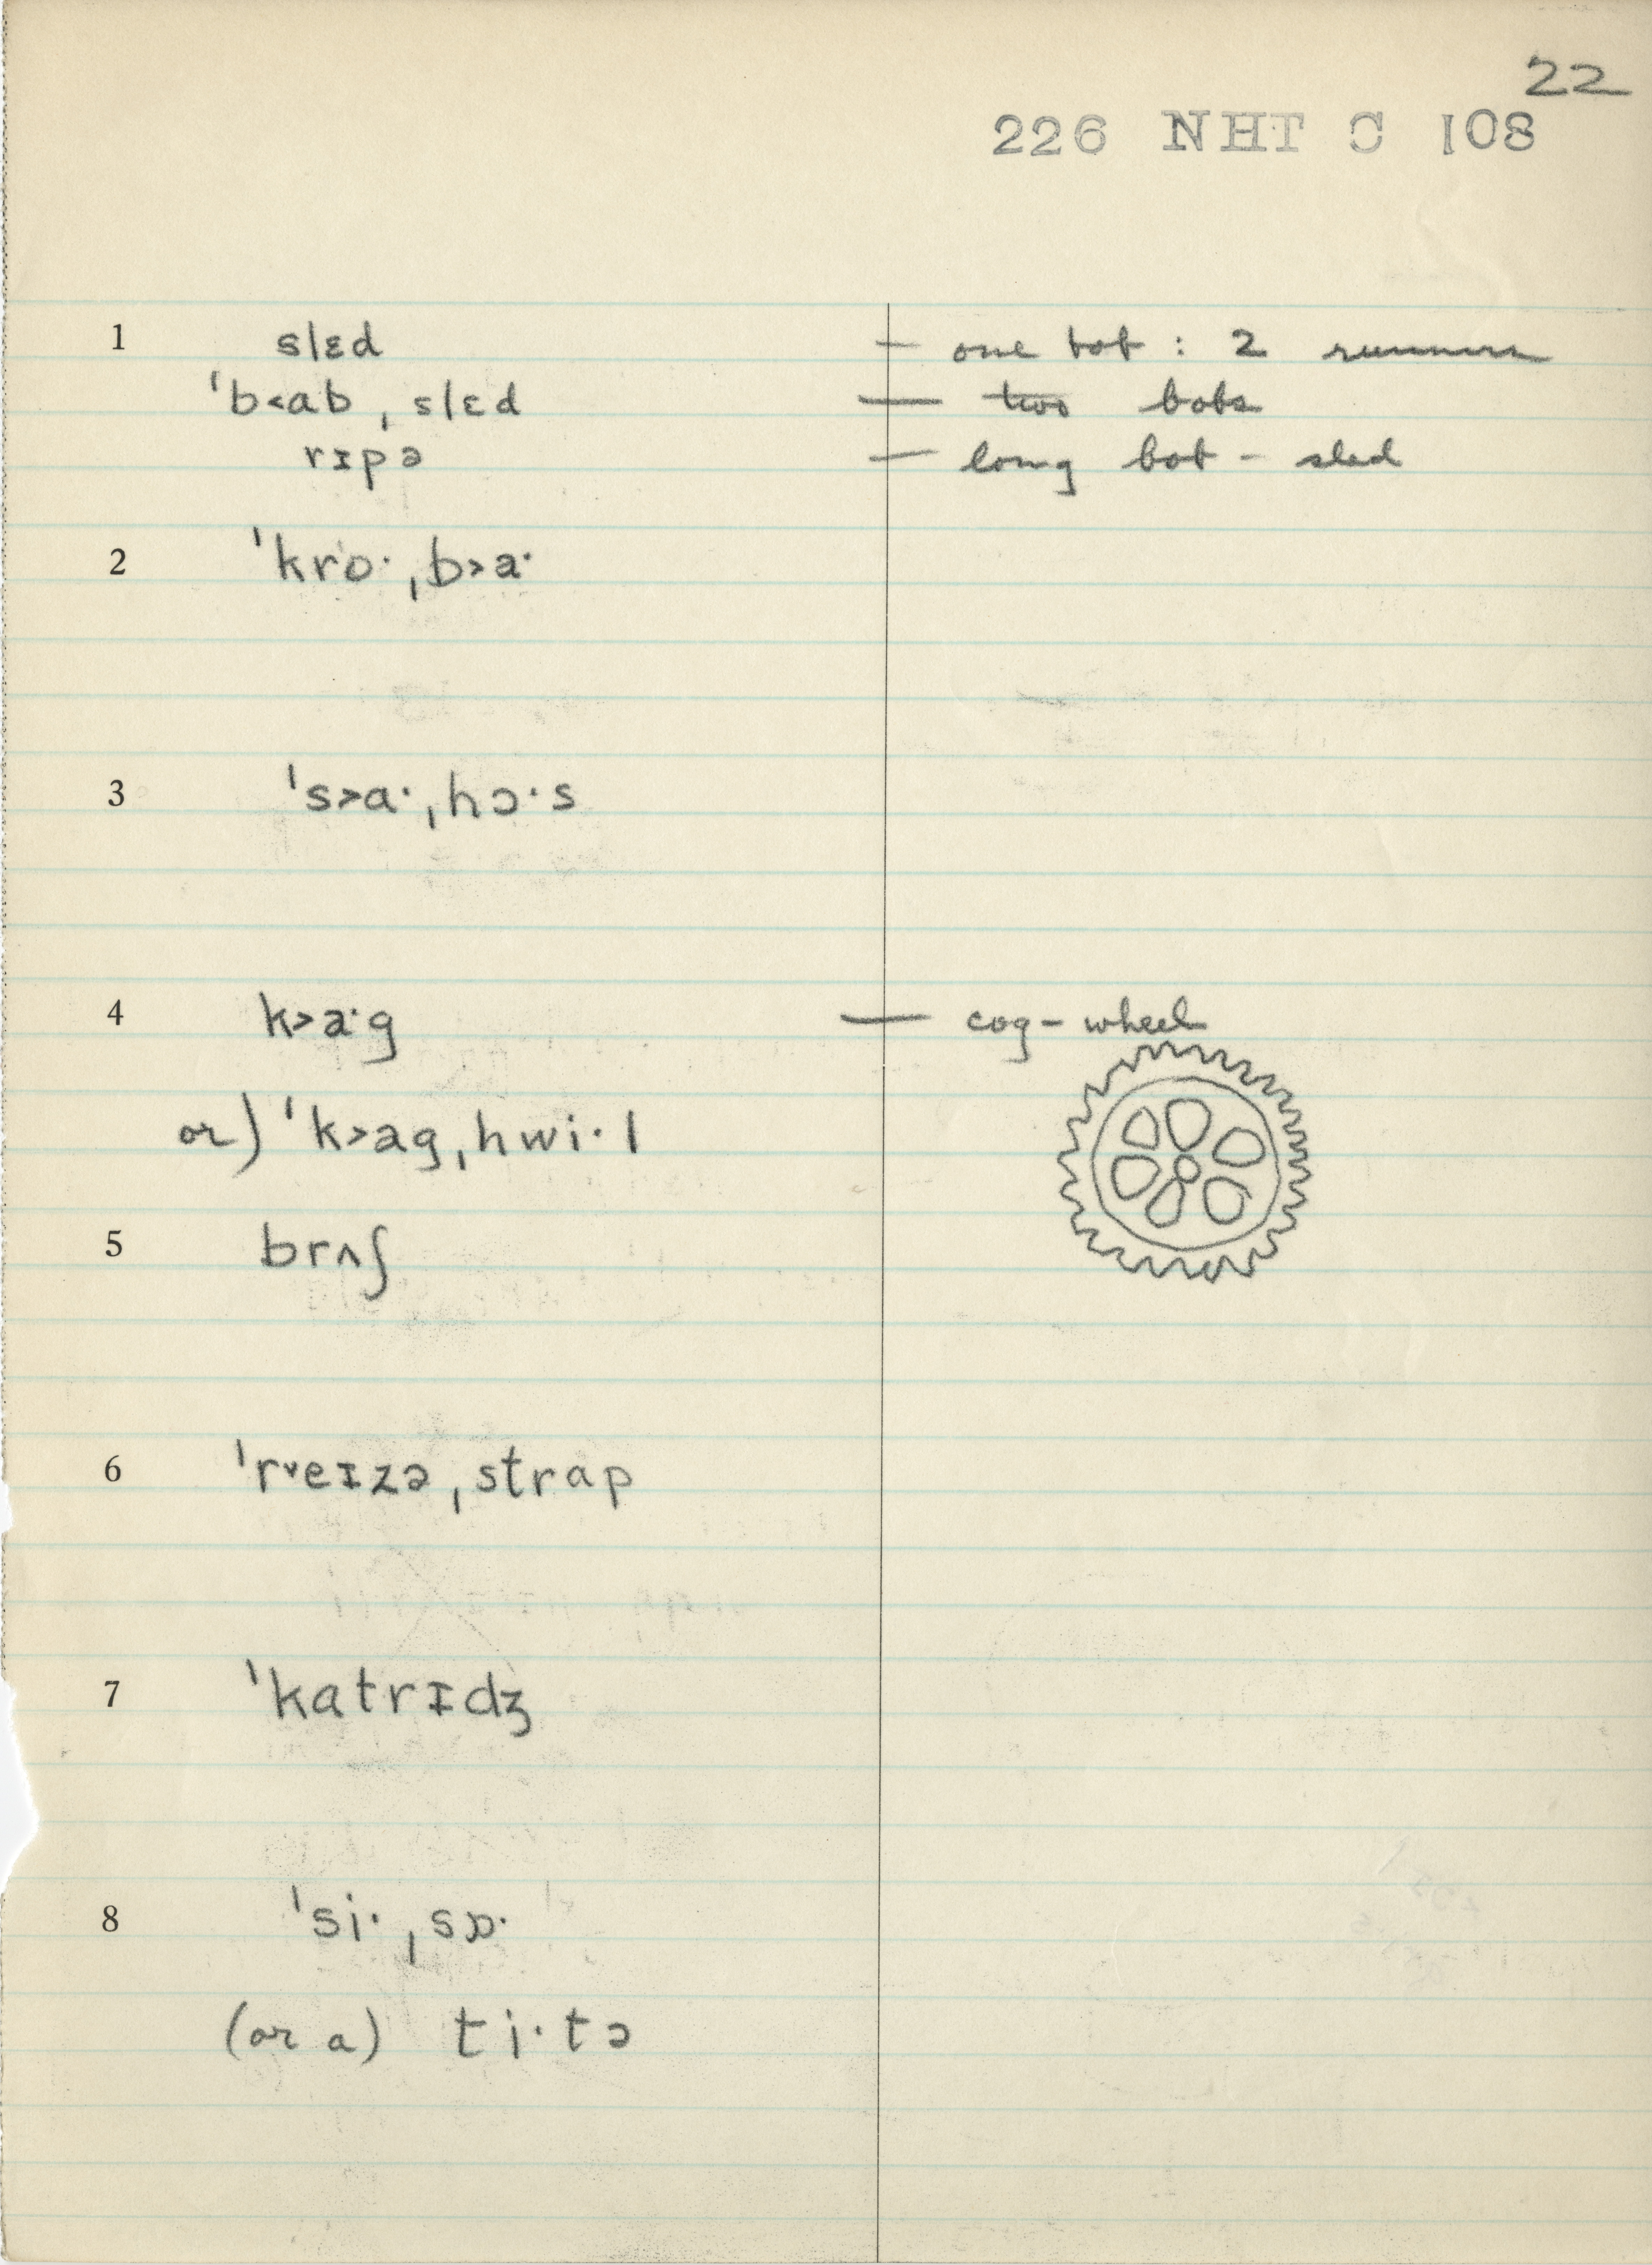 22
226 NHT C 108
1 slɛd — one bob : 2 runners
ˈb<ab ˌslɛd — two bobs
rɪpə — long bob - sled
2 ˈkro· ˌb>a·
3 ˈs>a· ˌhɔ·s
4 k>a·g — cog - wheel
or) ˈk>ag ˌhwi·l
5 brʌʃ
6 ˈrᵛeɪzə ˌstrap
7 ˈkatrɪdʒ
8 ˈsi· ˌsɒ·
(or a) ti·tə